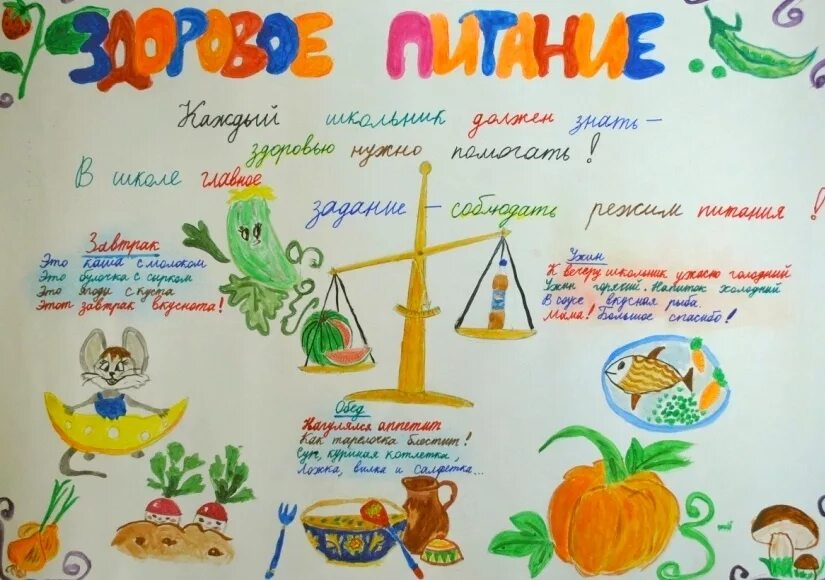 ЗДОРОВОЕ ПИТАНИЕ
Каждый школьник должен знать –
здоровью нужно помогать!
В школе главное
задание – соблюдать режим питания!
Завтрак
Это каша с молоком
Это булочка с сырком
Это ягоды с куста
Этот завтрак вкуснота!
Ужин
К вечеру школьник ужасно голодный
Ужин горячий. Напиток холодный
В соусе вкусная рыба.
Мама! Большое спасибо!
Обед
Нагулялся аппетит
Как тарелочка блестит!
Суп, куриная котлетка,
Ложка, вилка и салфетка...